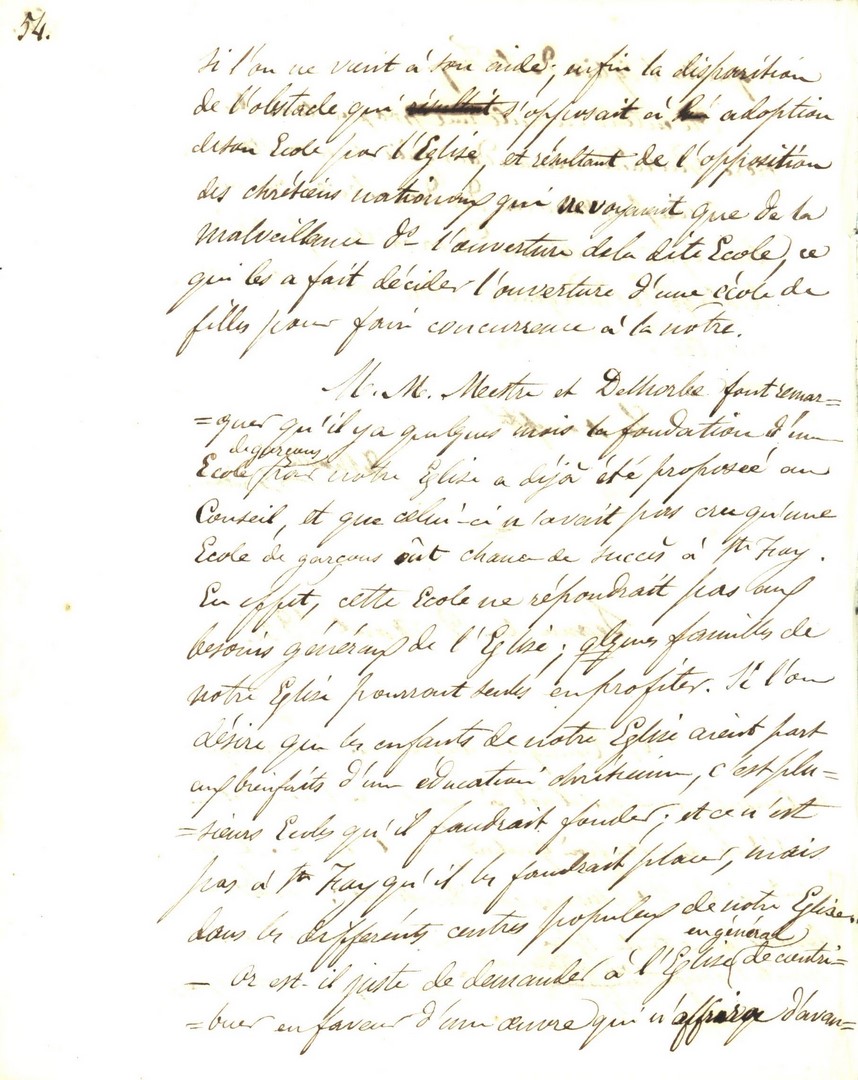 54.
si l'on ne vient à son aide; enfin la disparition
de l'obstacle qui résultait s'opposait à adoption
de son Ecole par l'Eglise, et résultant de l'opposition
des chrétiens nationaux qui ne voyaient que de la
malveillance ds l'ouverture de la dite Ecole, ce
qui les a fait décider l'ouverture d'une école de
filles pour faire concurrence à la nôtre.
M. M. Mestre et Delhorbe font remar=
=quer qu'il y a quelques mois la fondation d'une
de garçons
Ecole pour notre Eglise a déjà été proposée au
Conseil, et que celui-ci n'avait pas cru qu'une
Ecole de garçons eût chance de succès à Ste Foy.
En effet, cette Ecole ne répondrait pas aux
besoins généraux de l'Eglise; qlques familles de
notre Eglise pourront seules en profiter. Si l'on
désire que les enfants de notre Eglise aient part
aux bienfaits d'une éducation chrétienne, c'est plu=
=sieurs Ecoles qu'il faudrait fonder; et ce n'est
pas à Ste Foy qu'il les faudrait placer, mais
dans les différents centres populeux de notre Eglise.
en général
– Or est-il juste de demander à l'Eglise de contri=
=buer en faveur d'une œuvre qui n'offrira d'avan=